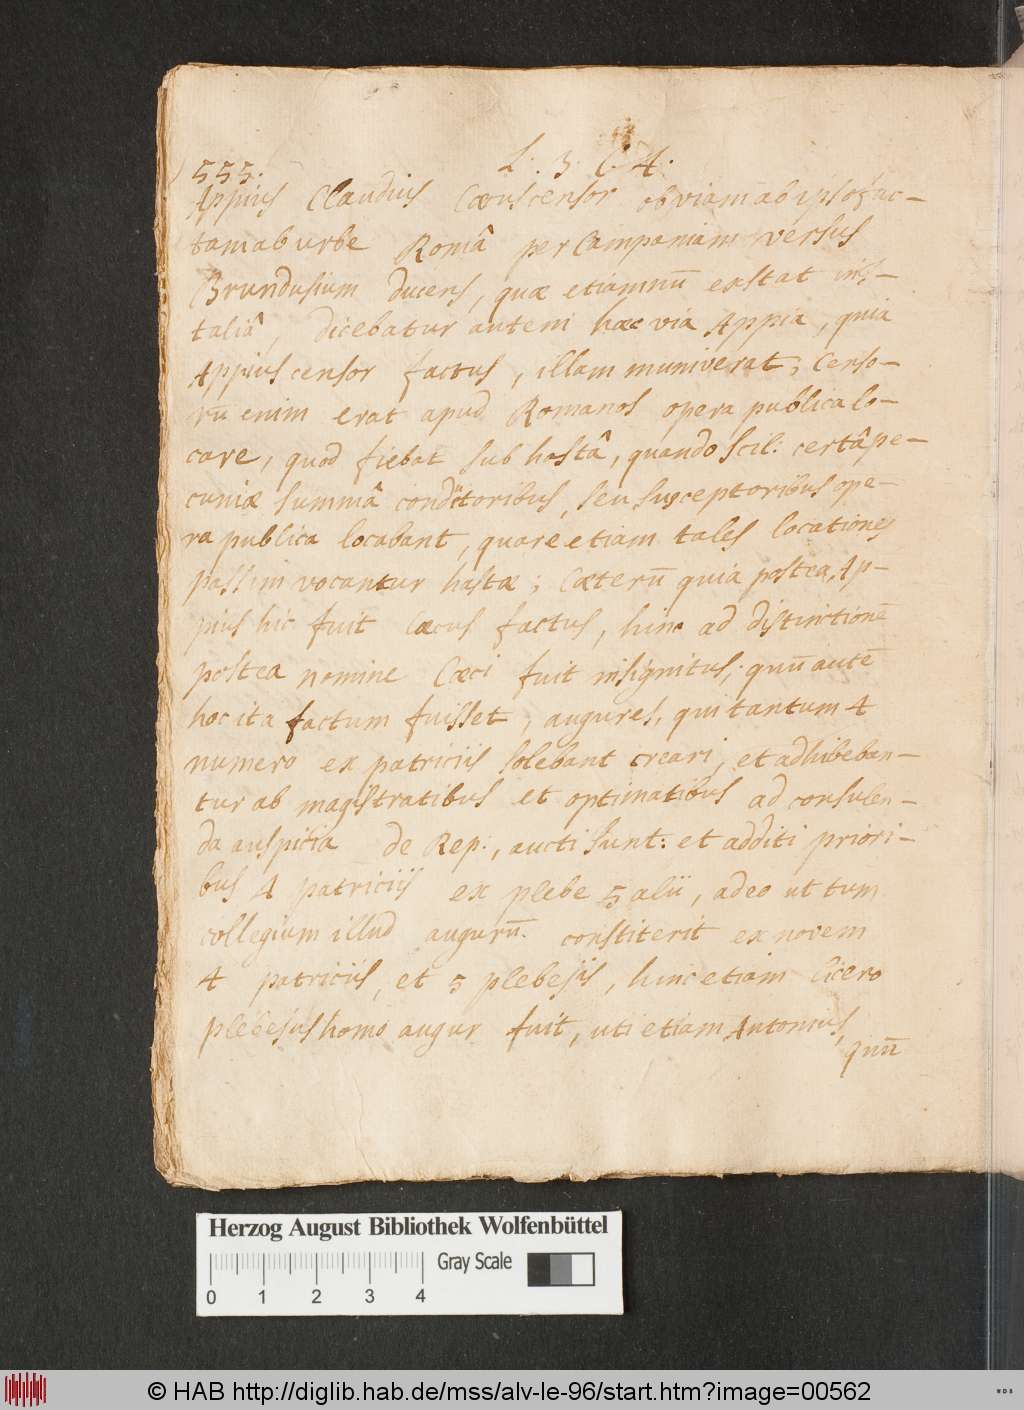 555. L. 3. C 4.
Appius Claudius Cæcus censor ob viam ab ipso fac-
tam ab urbe Româ per Campaniam versus
Brundusium ducens, quæ etiamnū exstat in I-
taliâ, dicebatur autem hæc via Appia, quia
Appius censor factus, illam muniverat; Censo-
rū enim erat apud Romanos opera publica lo-
care, quod fiebat sub hastâ, quando scil: certâ pe-
cuniæ summâ conductoribus, seu susceptoribus ope-
ra publica locabant, quare etiam tales locationes
passim vocantur hastæ; Cæterū quia postea Ap-
pius hic fuit cæcus factus, hinc ad distinctionē
postea nomine Cæci fuit insignitus, quū autē
hoc ita factum fuisset, augures, qui tantum 4
numero ex patriciis solebant creari, et adhibeban-
tur ab magistratibus et optimatibus ad consulen-
da auspicia de Rep:, aucti sunt: et additi priori-
bus 4 patriciis ex plebe 5 alii, adeo ut tum
collegium illud augurū constiterit ex novem
4 patriciis, et 5 plebejis, hinc etiam Cicero
plebejus homo augur fuit, uti etiam Antonius,
quū
Herzog August Bibliothek Wolfenbüttel
Gray Scale
0 1 2 3 4
© HAB http://diglib.hab.de/mss/alv-le-96/start.htm?image=00562